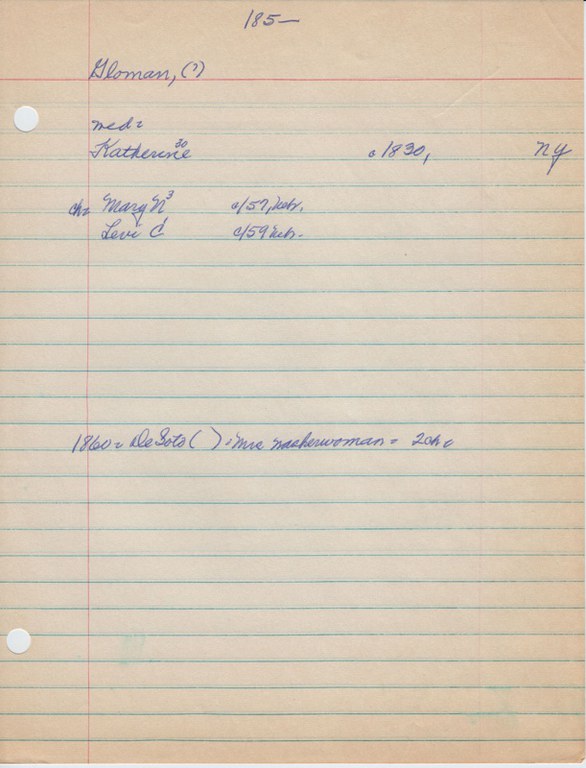 185—
Gloman, (?)
med=
Katherine 30 c1830, NY
ch= Mary N 3 c/57, Nebr.
Levi C 1 c/59 Nebr.
1860= DeSoto ( ) : Mrs washerwoman = 2ch=